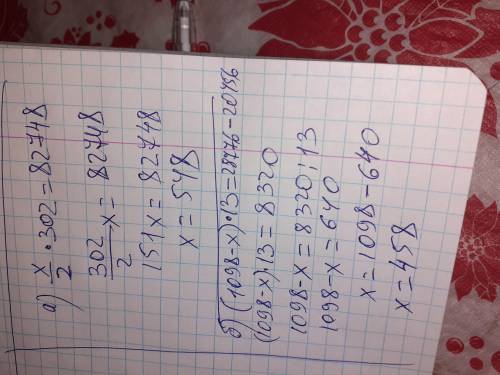 а) x/2 · 302 = 82748
302/2 x = 82748
151x = 82748
x = 548
б) (1098-x)·13=28776-20456
(1098-x)·13=8320
1098-x=8320:13
1098-x=640
x=1098-640
x=458